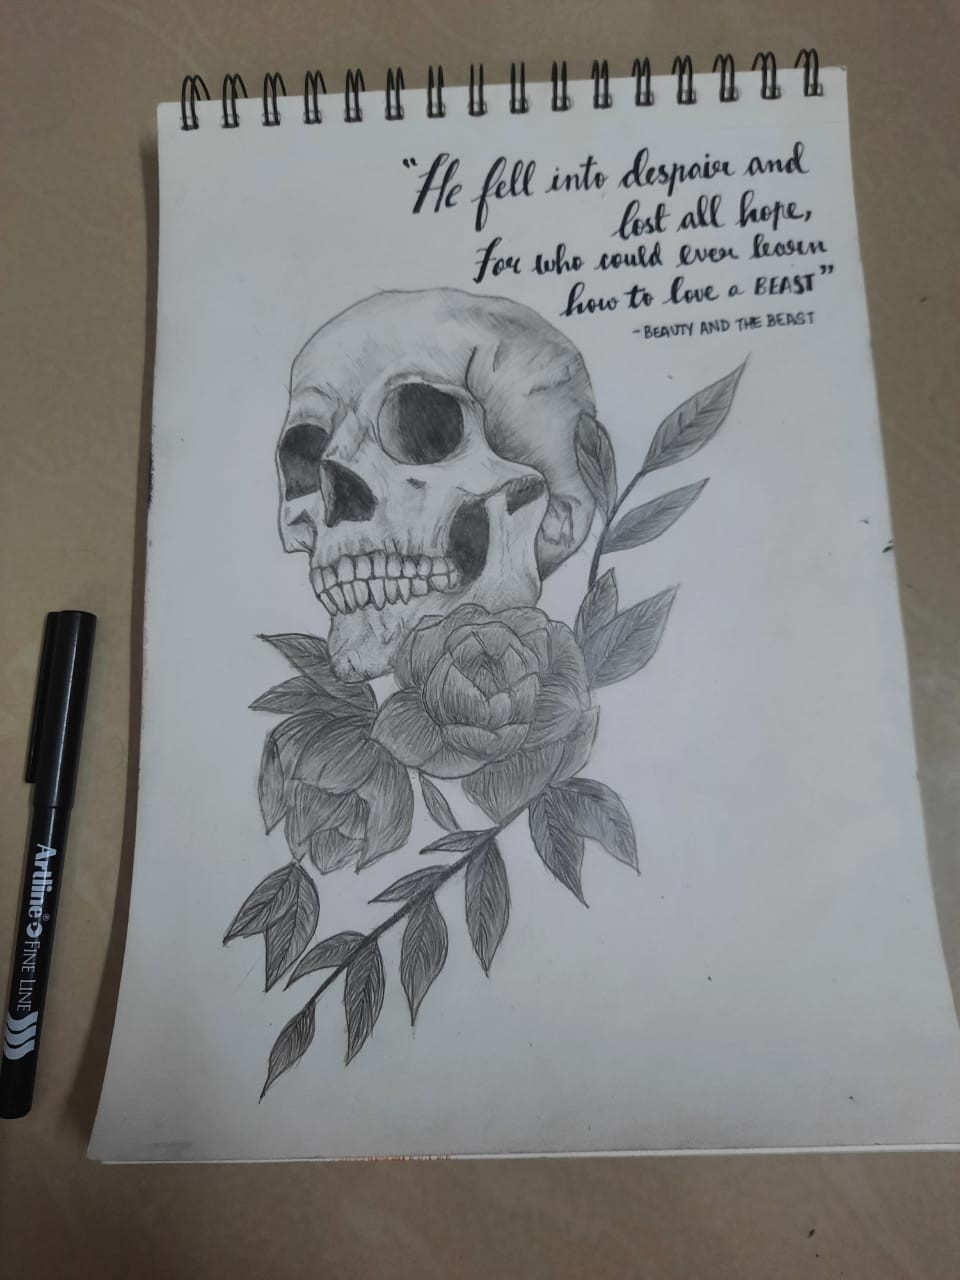 "He fell into despair and
lost all hope,
for who could ever learn
how to love a BEAST"
- BEAUTY AND THE BEAST
Artline® FINE LINE